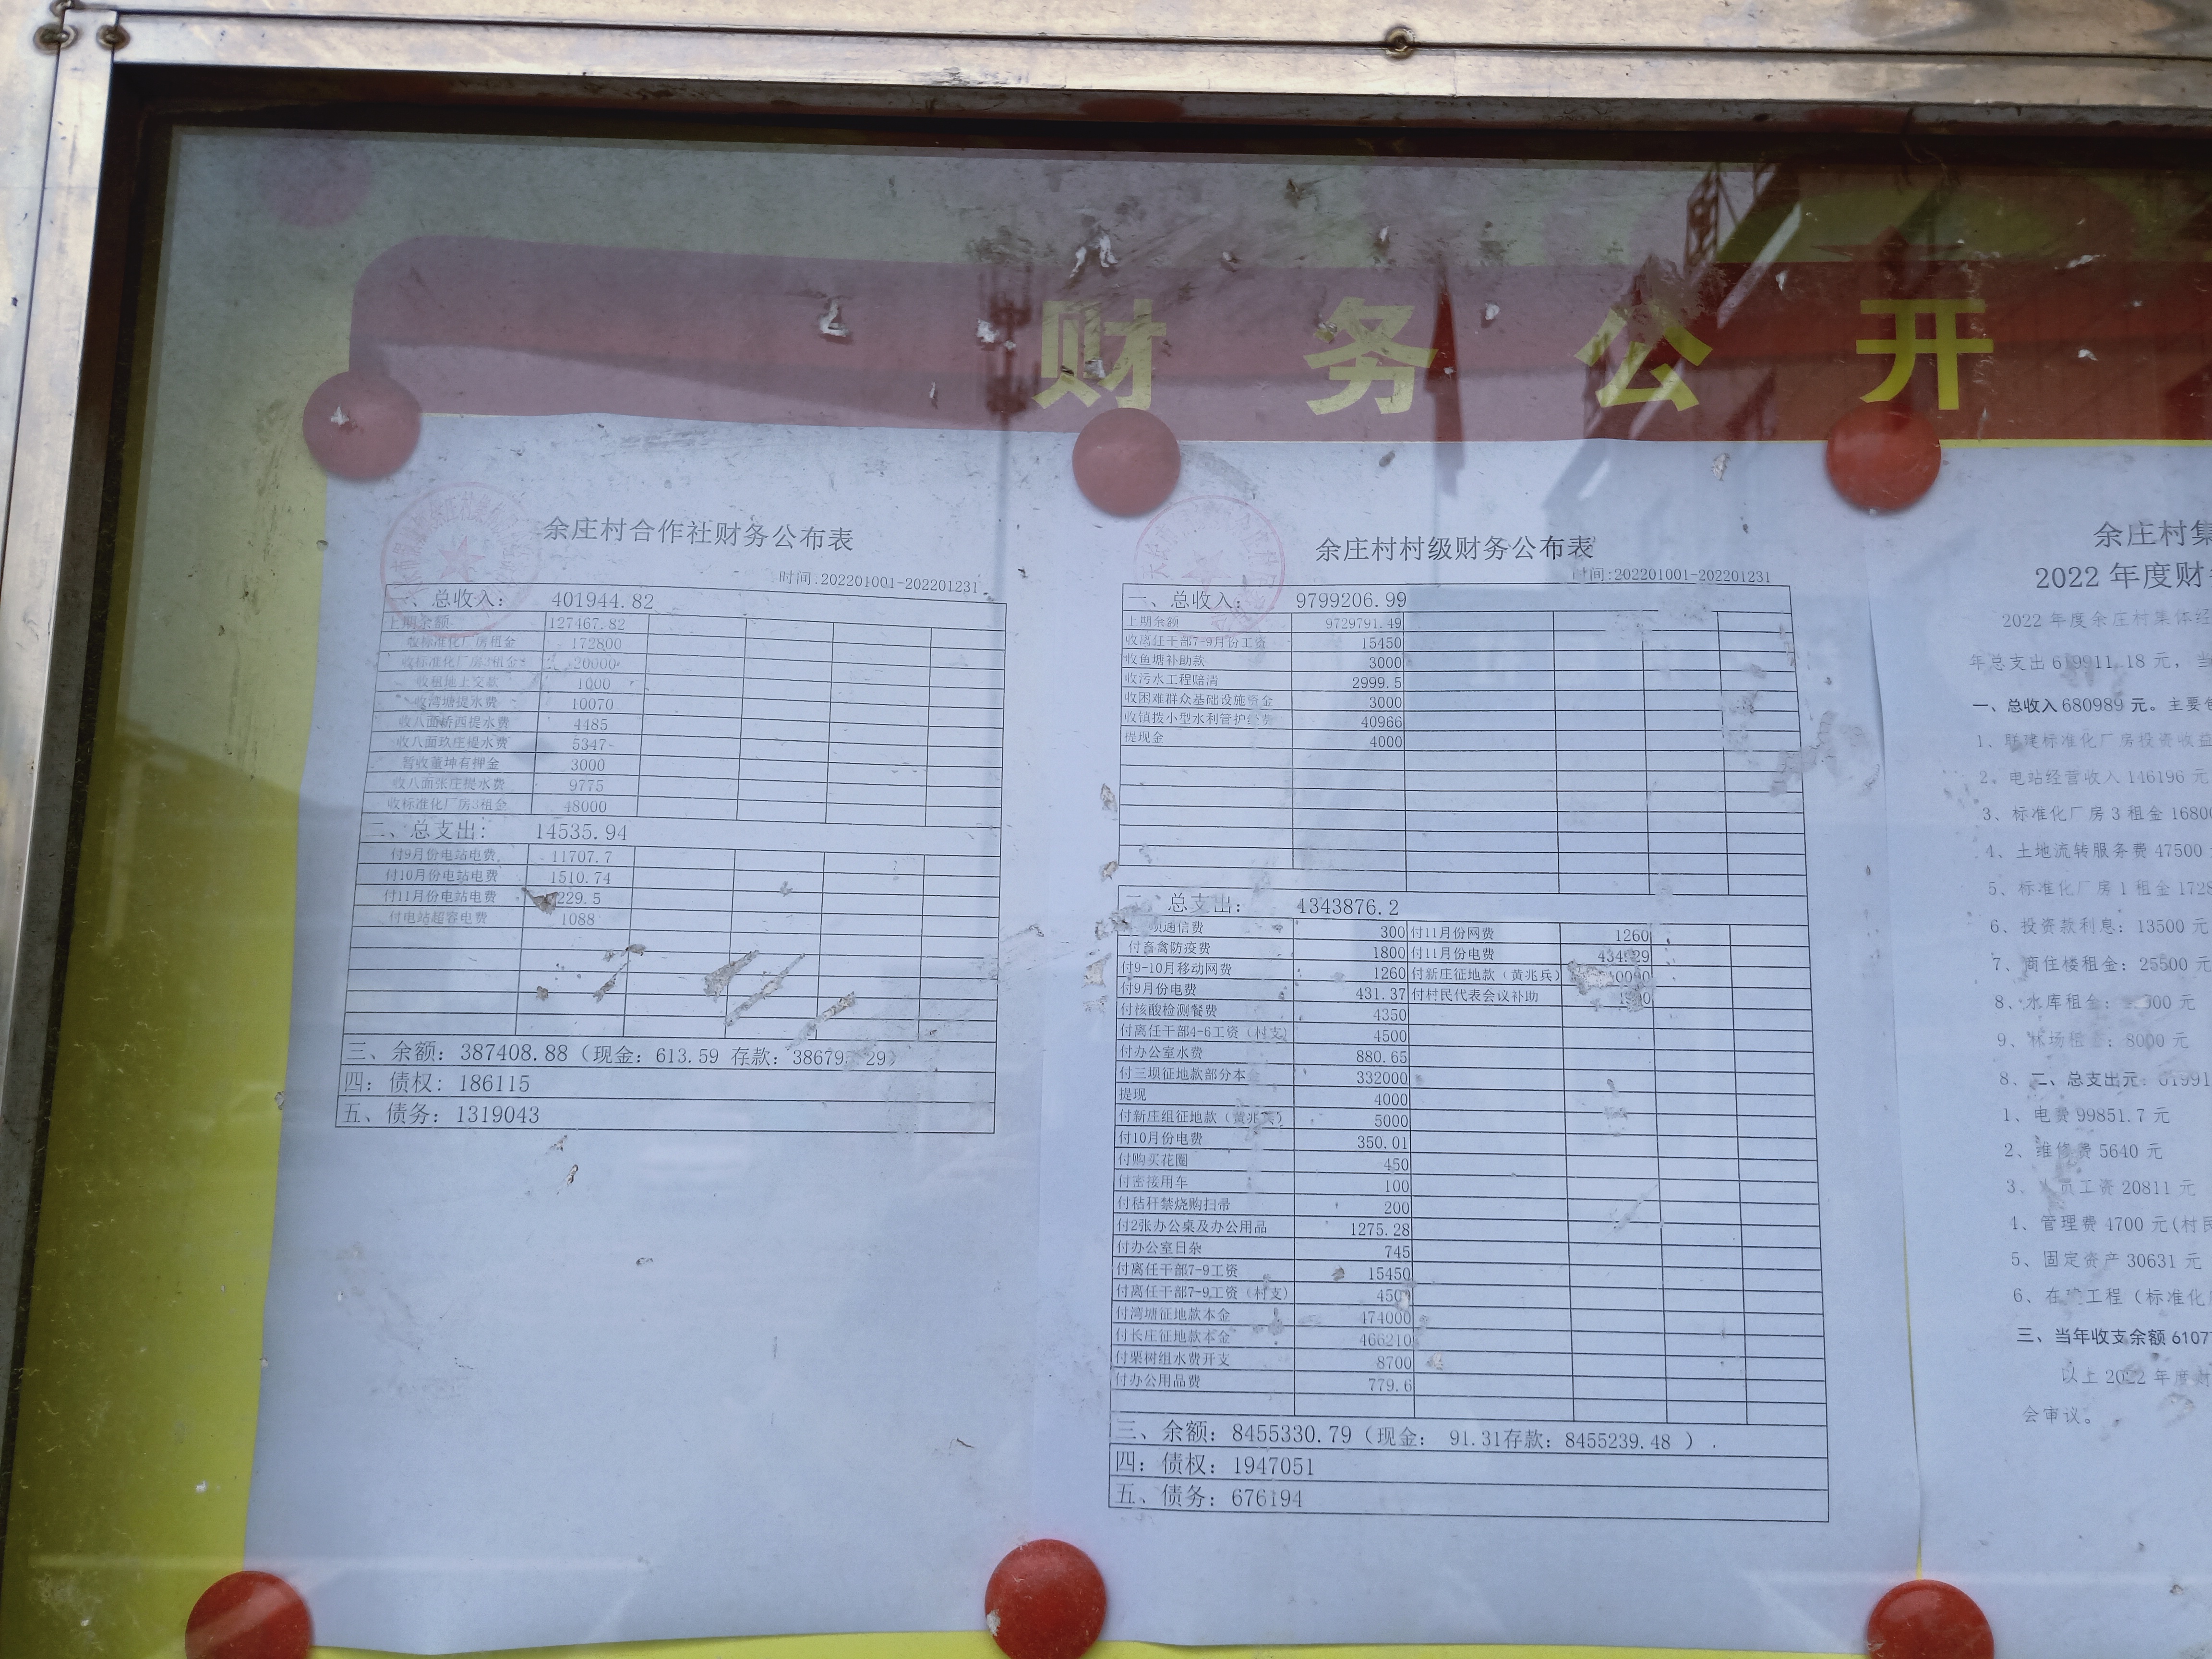 财务公开
余庄村合作社财务公布表
时间:202201001-202201231
一、总收入: 401944.82
上期余额 127467.82
收标准化厂房租金 172800
收标准化厂房 租金 20000
收租地上交款 1000
收湾塘提水费 10070
收八面桥西提水费 4485
收八面玖庄提水费 5347
暂收董坤有押金 3000
收八面张庄提水费 9775
收标准化厂房3租金 48000
二、总支出: 14535.94
付9月份电站电费 11707.7
付10月份电站电费 1510.74
付11月份电站电费 229.5
付电站超容电费 1088
三、余额: 387408.88（现金: 613.59 存款: 38679 29）
四: 债权: 186115
五、债务: 1319043
余庄村村级财务公布表
时间:202201001-202201231
一、总收入: 9799206.99
上期余额 9729791.49
收离任干部7-9月份工资 15450
收鱼塘补助款 3000
收污水工程赔清 2999.5
收困难群众基础设施资金 3000
收镇拨小型水利管护经费 40966
提现金 4000
总支出: 1343876.2
通信费 300 付11月份网费 1260
付畜禽防疫费 1800 付11月份电费 434.29
付9-10月移动网费 1260 付新庄征地款（黄兆兵）
付9月份电费 431.37 付村民代表会议补助
付核酸检测餐费 4350
付离任干部4-6工资（村支） 4500
付办公室水费 880.65
付三坝征地款部分本金 332000
提现 4000
付新庄组征地款（黄兆兵） 5000
付10月份电费 350.01
付购买花圈 450
付密接用车 100
付秸秆禁烧购扫帚 200
付2张办公桌及办公用品 1275.28
付办公室日杂 745
付离任干部7-9工资 15450
付离任干部7-9工资（村支） 450
付湾塘征地款本金 474000
付长庄征地款本金 466210
付栗树组水费开支 8700
付办公用品费 779.6
三、余额: 8455330.79（现金: 91.31存款: 8455239.48 ）
四: 债权: 1947051
五、债务: 676194
余庄村集
2022 年度财
2022 年度余庄村集体经
年总支出 619911.18 元，当
一、总收入 680989 元。主要包
1、联建标准化厂房投资收益
2、电站经营收入 146196 元
3、标准化厂房 3 租金 16800
4、土地流转服务费 47500
5、标准化厂房 1 租金 1728
6、投资款利息: 13500 元
7、商住楼租金: 25500 元
8、水库租金: 000 元
9、林场租金: 8000 元
8、二、总支出元: 61991
1、电费 99851.7 元
2、维修费 5640 元
3、人员工资 20811 元
4、管理费 4700 元(村民
5、固定资产 30631 元
6、在建工程（标准化厂
三、当年收支余额 6107
以上 2022 年度财
会审议。